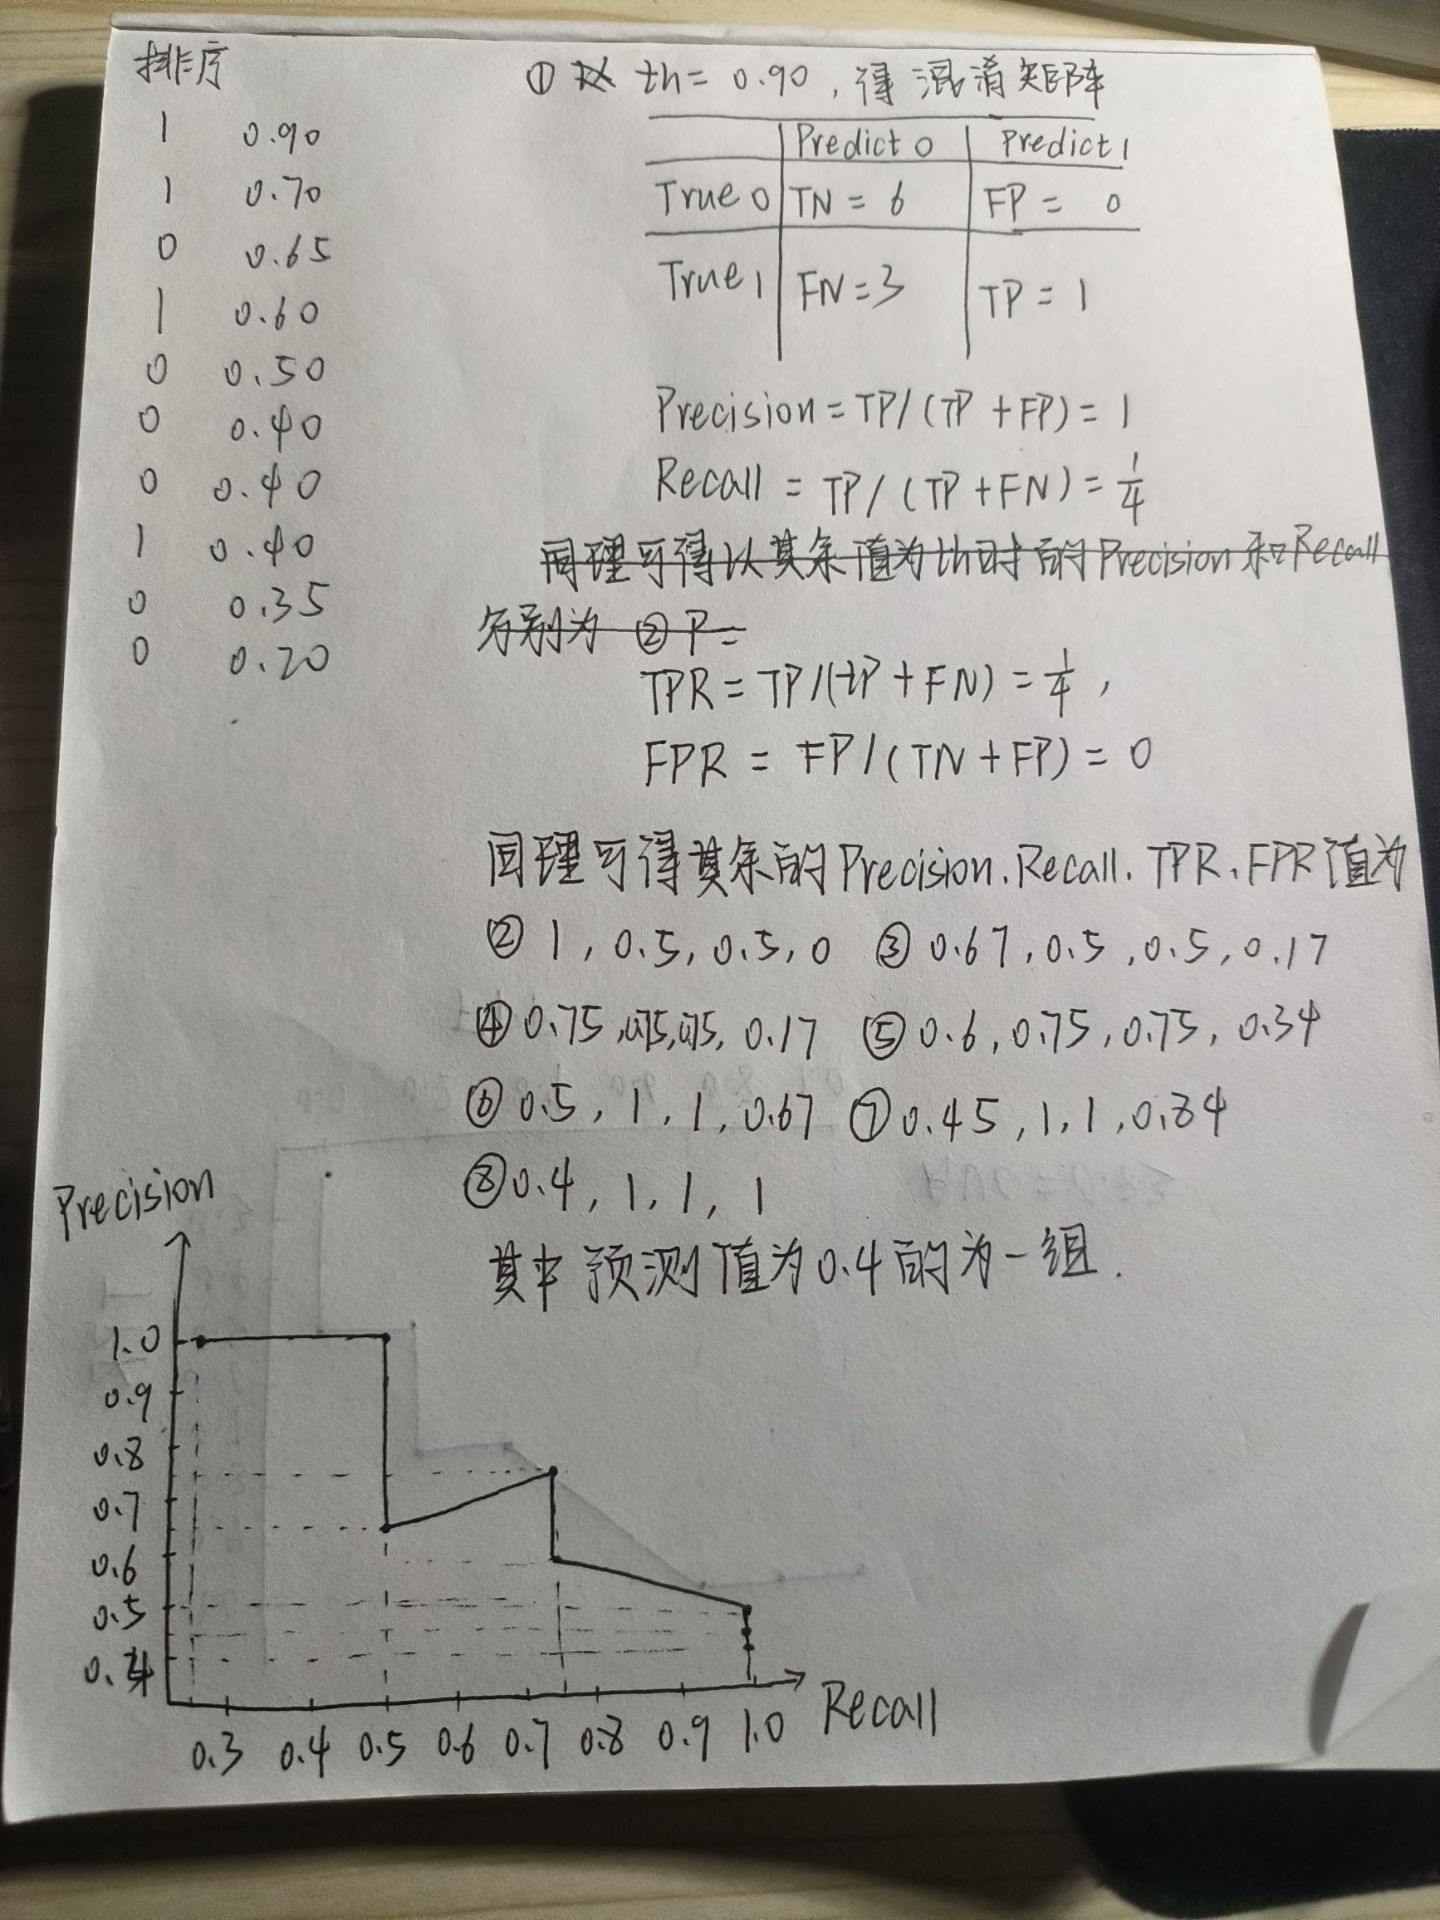 排序
1 0.90
1 0.70
0 0.65
1 0.60
0 0.50
0 0.40
0 0.40
1 0.40
0 0.35
0 0.20
① 以 th = 0.90 , 得混淆矩阵
Predict 0 Predict 1
True 0 TN = 6 FP = 0
True 1 FN = 3 TP = 1
Precision = TP / (TP + FP) = 1
Recall = TP / (TP + FN) = 1/4
同理可得以其余值为th时的Precision和Recall
分别为 ② P =
TPR = TP / (TP + FN) = 1/4 ,
FPR = FP / (TN + FP) = 0
同理可得其余的Precision、Recall、TPR、FPR值为
② 1 , 0.5, 0.5, 0 ③ 0.67, 0.5 , 0.5, 0.17
④ 0.75, 0.75, 0.75, 0.17 ⑤ 0.6, 0.75, 0.75, 0.34
⑥ 0.5, 1, 1, 0.67 ⑦ 0.45, 1, 1, 0.84
⑧ 0.4, 1, 1, 1
其中预测值为0.4的为一组.
Precision
1.0
0.9
0.8
0.7
0.6
0.5
0.4
0.3 0.4 0.5 0.6 0.7 0.8 0.9 1.0 Recall